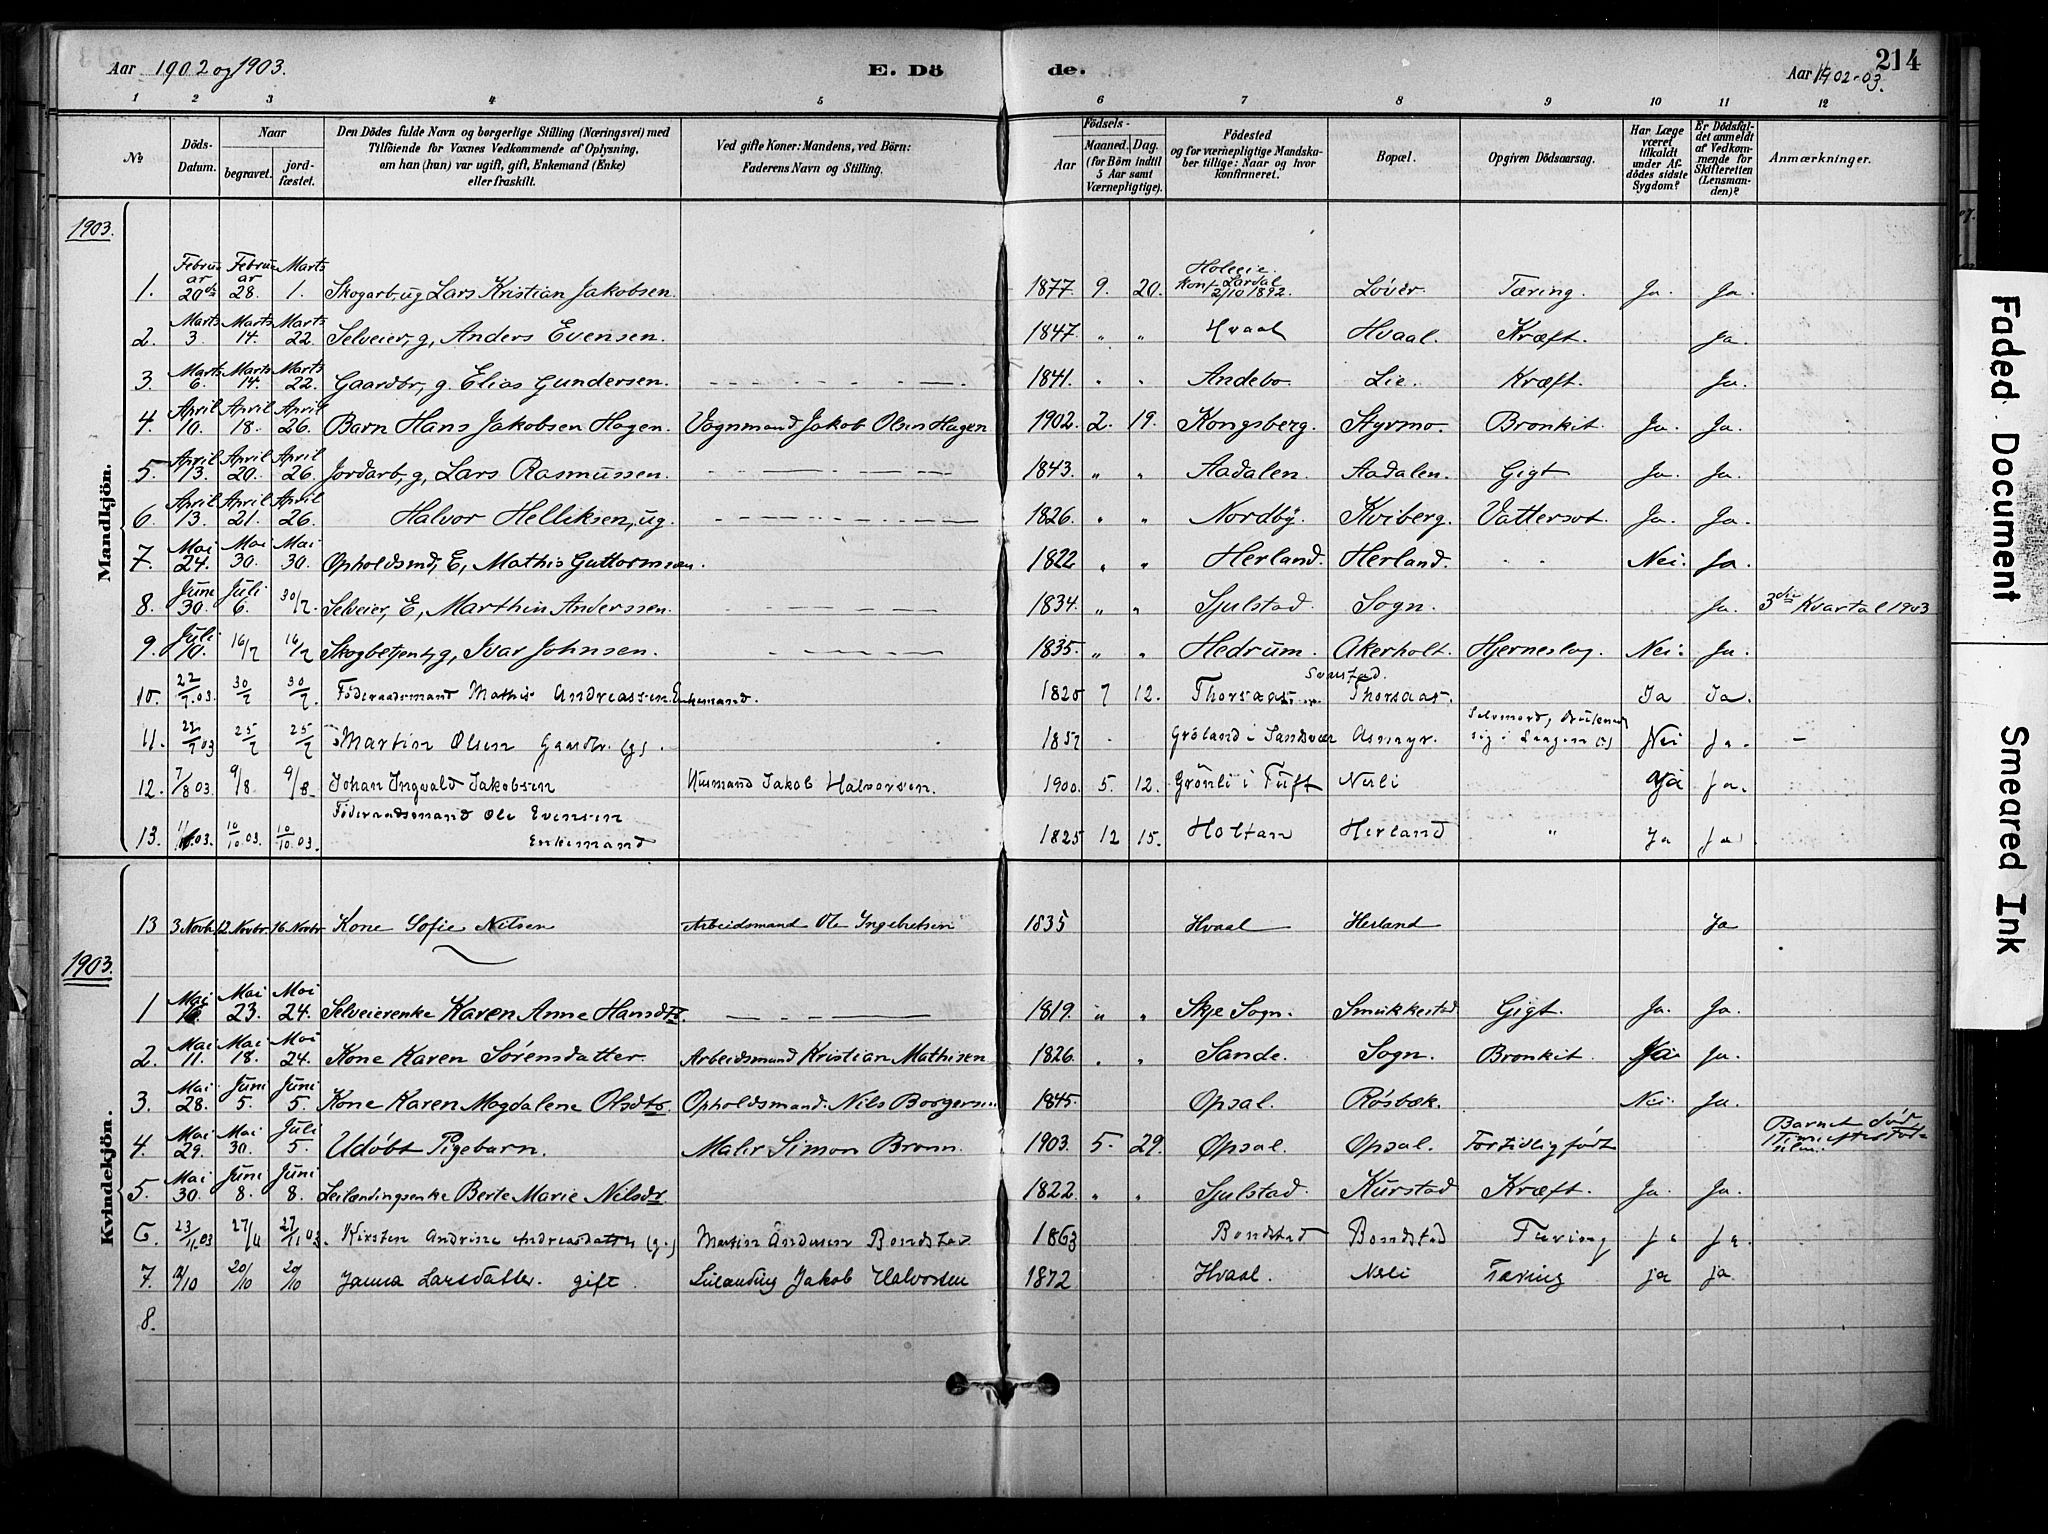 Aar 1902 og 1903.
E. Döde.
Aar 1902-03.
214
1 2 3 4 5 6 7 8 9 10 11 12
№
Döds-Datum.
Naar
begravet.
jordfæstet.
Den Dödes fulde Navn og borgerlige Stilling (Næringsvei) med Tilföiende for Voxnes Vedkommende af Oplysning, om han (hun) var ugift, gift, Enkemand (Enke) eller fraskilt.
Ved gifte Koner: Mandens, ved Börn: Faderens Navn og Stilling.
Födsels-
Aar
Maaned. Dag.
(for Börn indtil 5 Aar samt Værnepligtige).
Födested og for værnepligtige Mandskaber tillige: Naar og hvor konfirmeret.
Bopæl.
Opgiven Dödsaarsag.
Har Læge været tilkaldt under Afdödes sidste Sygdom?
Er Dödsfaldet anmeldt af Vedkommende for Skifteretten (Lensmanden)?
Anmærkninger.
1903.
Mandkjön.
1. Februar 20de Februar 28. Marts 1. Skogarb, ug Lars Kristian Jakobsen. 1877. 9. 20. Konf. Lardal 2/10 1892. Løver. Tæring. Ja. Ja.
2. Marts 3. Marts 14. Marts 22. Selveier, g, Anders Evensen. 1847. " " Hvaal Hvaal. Kræft. Ja.
3. Marts 6. Marts 14. Marts 22. Gaardbr, g. Elias Gundersen. 1841. " " Andebo Lie. Kræft. Ja.
4. April 10. April 18. April 26. Barn Hans Jakobsen Hagen. Vognmand Jakob Olsen Hagen 1902. 2. 19. Kongsberg. Styrmo. Bronkit. Ja. Ja.
5. April 13. April 20. April 26. Jordarb, g, Lars Rasmussen. 1843. " " Aadalen. Aadalen. Gigt Ja. Ja.
6. April 13. April 21. April 26. Halvor Helliksen, ug. 1826. " " Nordby. Kviberg. Vattersot. Ja. Ja.
7. Mai 24. Mai 30. Mai 30. Opholdsmd, E, Mathis Guttormsen. 1822. " " Herland. Herland. Nei. Ja.
8. Juni 30. Juli 6. 30/7. Selveier, E, Marthin Anderssen. 1834. " " Sjulstad. Sogn. Ja. 3die Kvartal 1903
9. Juli 10. 16/7 16/7 Skogbetjent, g, Ivar Johnsen. 1835. " " Hedrum. Akerholt. Hjerneslag. Nei. Ja.
10. 22/7.03. 30/7 30/7. Föderaadsmand Mathis Andreassen Enkemand. 1820 7 12. Thorsaas Thorsaas. Ja Ja.
11. 22/7 03 25/7 25/7 Martin Olsen Gaardbr. (g). 1857 Gröland i Sandsvær Asmyr. Selvmord, druknede sig i Laagen Nei Ja.
12. 7/8 03 9/8 9/8 Johan Ingvald Jakobsen Husmand Jakob Halvorsen. 1900. 5. 12. Grönli i Tuft Nali Ja Ja.
13. 03. 10/10 03. 10/10 03. Föderaadsmand Ole Evensen Enkemand 1825 12 15. Holtan Herland " Ja Ja
13 3 Novbr. 12 Novbr. 16 Novbr Kone Sofie Nilsen Arbeidsmand Ole Ingebretsen 1835 Hvaal Herland Ja
1903.
Kvindekjön.
1 Mai 16. Mai 23. Mai 24. Selveierenke Karen Anne Hansdtr. 1819. " " Skje Sogn. Smukkestad Gigt. Ja. Ja.
2. Mai 11. Mai 18. Mai 24. Kone Karen Sørensdatter. Arbeidsmand Kristian Mathisen 1826. " " Sande. Sogn. Bronkit. Ja. Ja.
3. Mai 28. Juni 5. Juni 5. Kone Karen Magdalene Olsdtr. Opholdsmand. Nils Borgersen 1845. Opsal. Røsbæk. Nei. Ja.
4. Mai 29. Mai 30. Juli 5. Udøbt Pigebarn. Maler Simon Bronn. 1903. 5. 29. Opsal. Opsal. Fortidlig født Barnet død 1 Time efter Fødselen.
5. Mai 30. Juni 8. Juni 8. Leilendingsenke Berte Marie Nilsdr 1822. " " Sjulstad. Kurstad Kræft. Ja. Ja.
6. 23/11.03 27/11 27/11 03. Kirsten Andrine Andreasdatter (g.) Martin Andersen Bondstad. 1863 Bondstad Bondstad Tæring Ja Ja.
7. /10 20/10 20/10 Janna Larsdatter. gift. Leilænding Jakob Halvorsen 1872 Hvaal. Nali Tæring ja ja.
8.
Faded Document
Smeared Ink